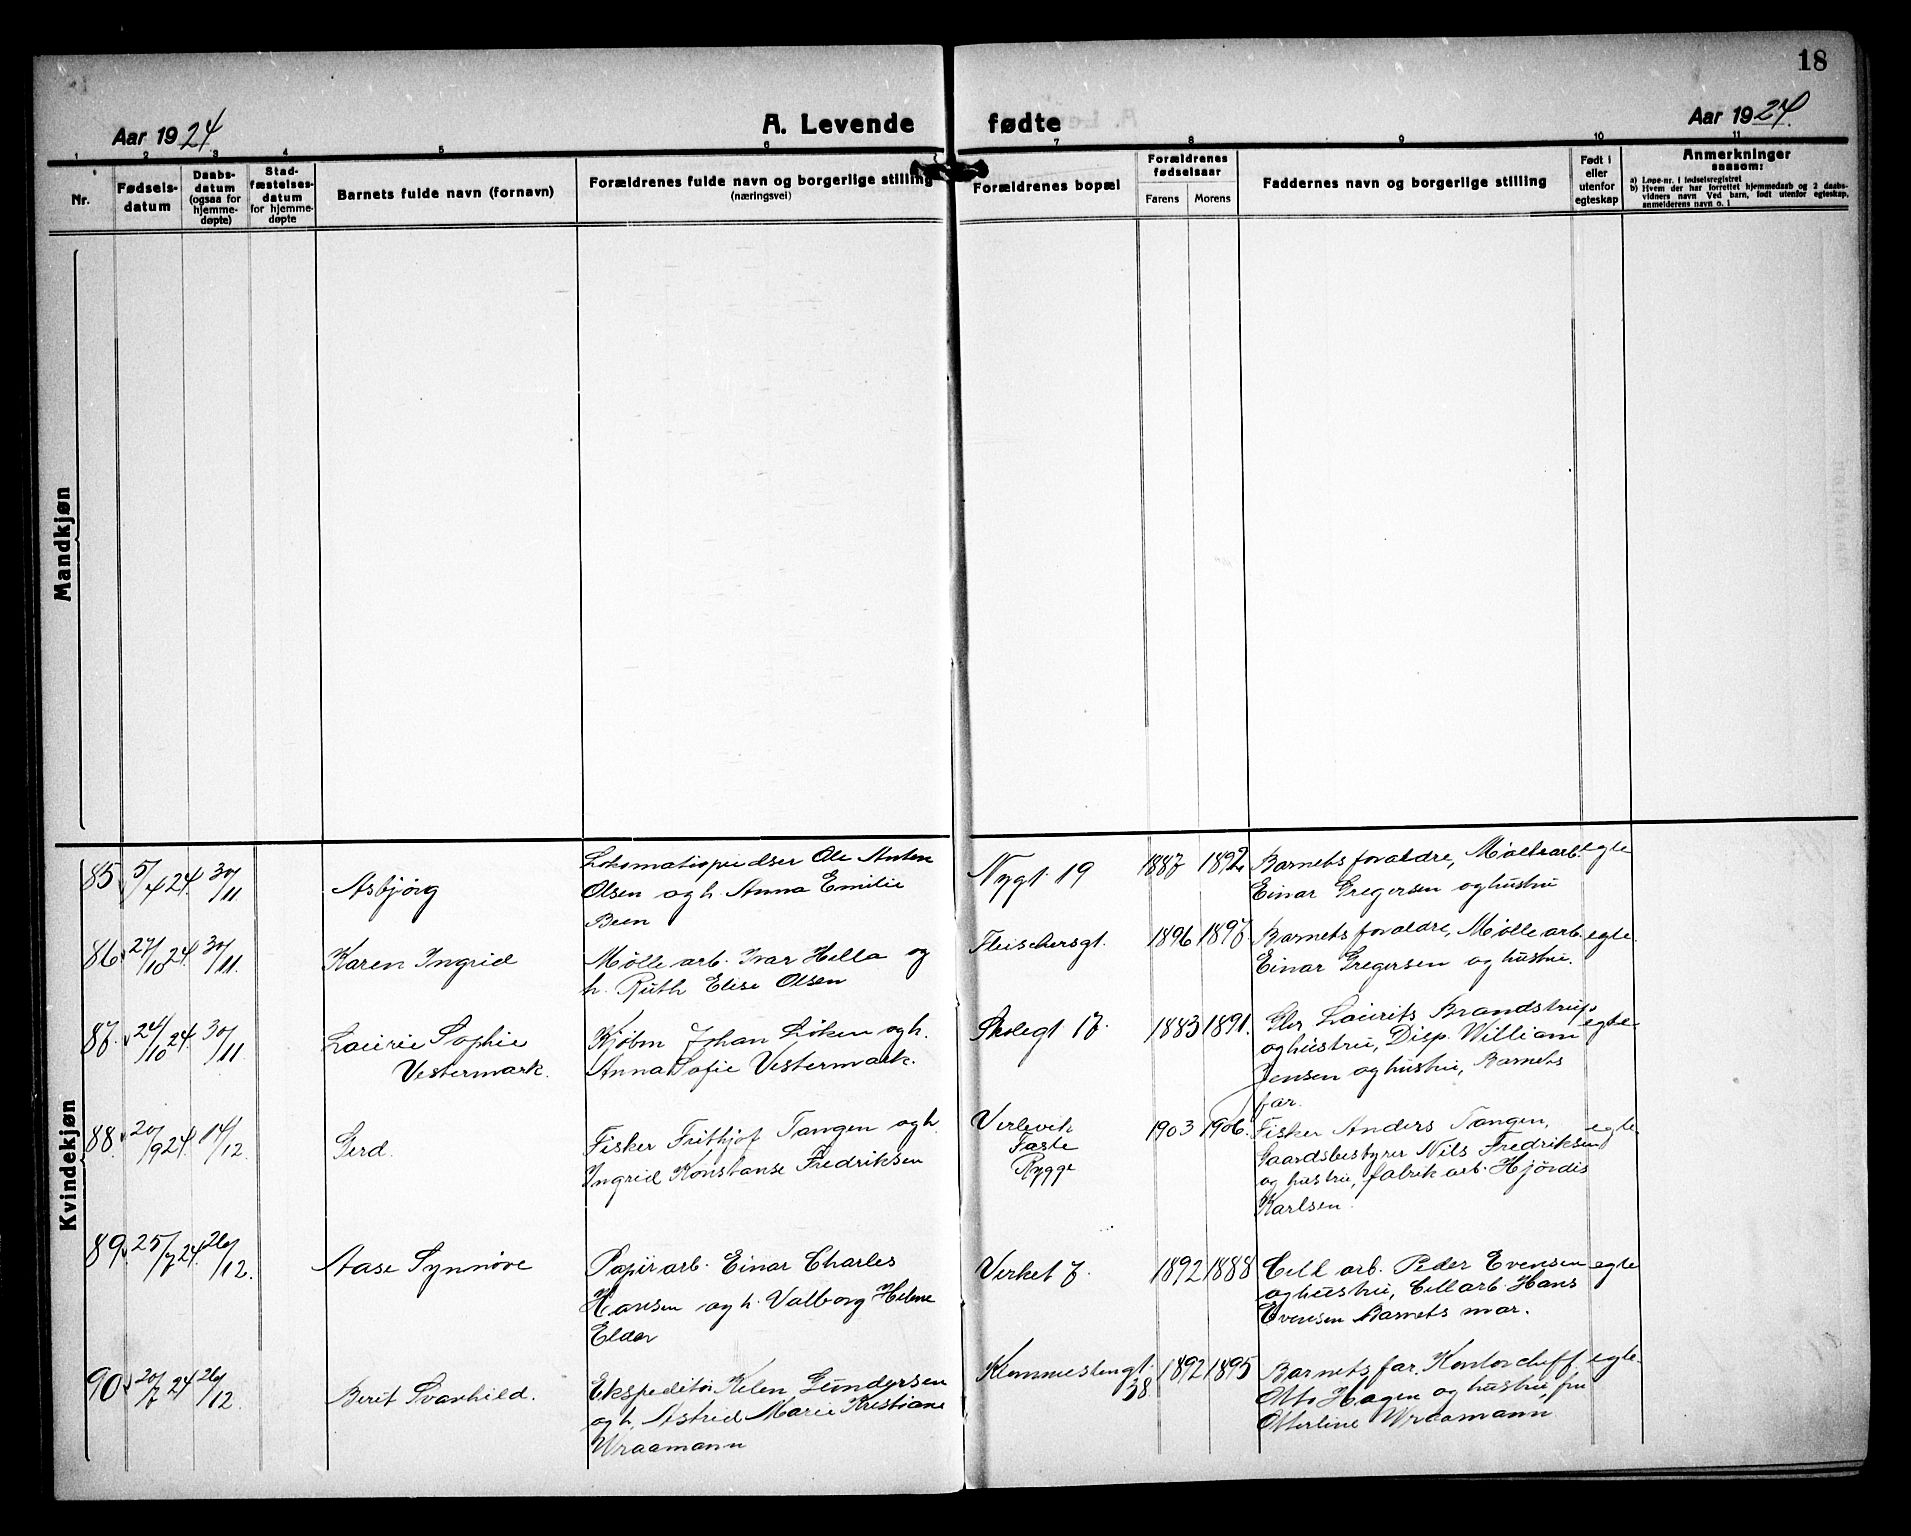 18
Aar 1924.
A. Levende fødte
Aar 1924.
1 2 3 4 5 6 7 8 9 10 11
Nr.
Fødsels-
datum
Daabs-
datum
(ogsaa for
hjemme-
døpte)
Stad-
fæstelses-
datum
for hjemme-
døpte
Barnets fulde navn (fornavn)
Forældrenes fulde navn og borgerlige stilling
(næringsvei)
Forældrenes bopæl
Forældrenes
fødselsaar
Farens Morens
Faddernes navn og borgerlige stilling
Født i
eller
utenfor
egteskap
Anmerkninger
saasom:
a) Løpe-nr. i fødselsregistret
b) Hvem der har forrettet hjemmedaab og 2 daabs-
vidners navn Ved barn, født utenfor egteskap,
anmelderens navn o. l
Mandkjøn
Kvindekjøn
85 5/4 24. 30/11
Asbjörg
Ole Anton
Olsen og h. Anna Emilie
Been
Nygt. 19
1887 1892
Barnets foraldre, Møllearb.
Einar Gregersen og hustru
egte
86 27/10 24. 30/11
Karen Ingrid
Mølle arb. Ivar Hella og
h. Ruth Elise Olsen
Fleischersgt.
1896 1897.
Barnets foraldre, Mølle arb.
Einar Gregersen og hustru.
egte.
87. 24/10 24. 30/11
Laurie Sophie
Vestermark.
Kjøbm Johan Löken og h.
Anna Sofie Vestermark.
Skolegt 17.
1883 1891.
Laurits Brandstrup
og hustru, Disp. William
Jensen og hustru, Barnets
far.
egte.
88. 20/9 24. 14/12.
Gerd.
Fisker Frithjof Tangen og h.
Ingrid Konstanse Fredriksen
Verlevik
Faste
Rygge
1903 1906.
Fisker Anders Tangen,
Gaardsbestyrer Nils Fredriksen
og hustru, fabrik arb. Hjördis
Karlsen.
egte
89. 25/7 24. 26/12.
Aase Synnøve
Papirarb. Einar Charles
Hansen og h. Valborg Helene
Elder
Verket 7.
1892 1888
Cell arb. Peder Evensen
og hustru, Cell arb. Hans
Evensen Barnets mor.
egte
90 20/7 24 26/12.
Berit Svanhild.
Ekspeditör Gundersen
og h. Astrid Marie Kristiane
Wraamann
38
1892 1895
Barnets far. Kontorcheff
Otto Hagen og hustru, fru
Otterline Wraamann
egte.